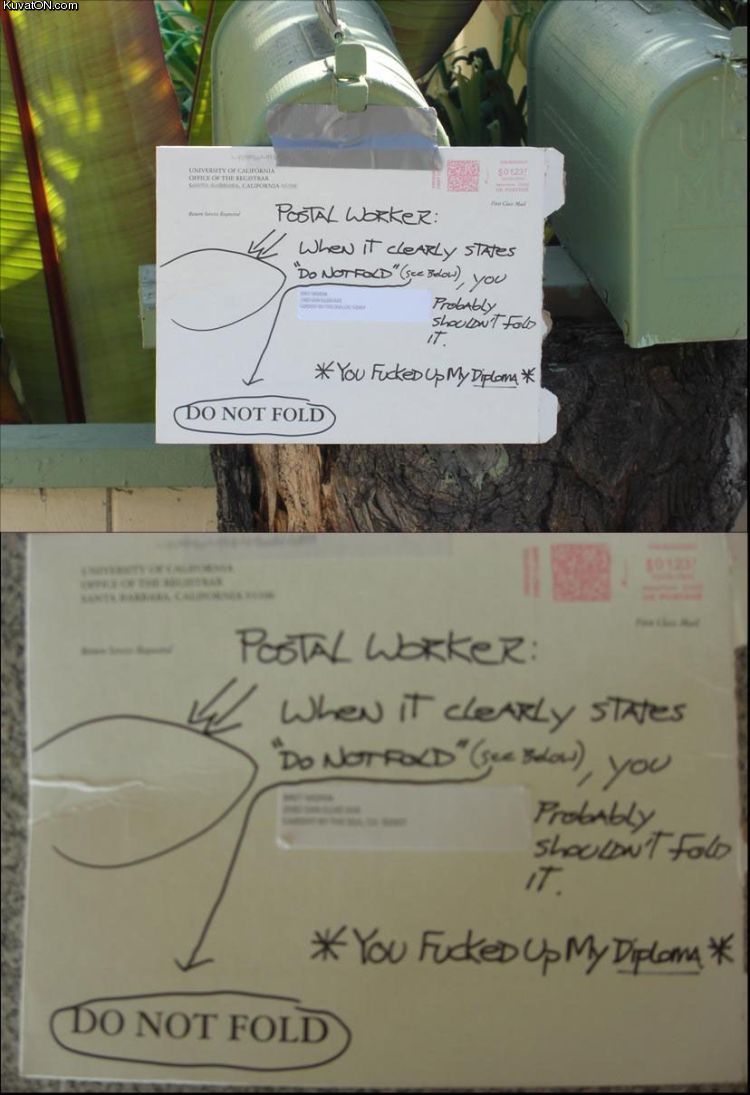 KuvatON.com
UNIVERSITY OF CALIFORNIA
OFFICE OF THE REGISTRAR
SANTA BARBARA, CALIFORNIA
Return Service Requested
$0 123?
US POSTAGE
First Class Mail
POSTAL WORKER:
WHEN IT CLEARLY STATES
"DO NOT FOLD" (SEE BELOW), YOU
PROBABLY
SHOULDN'T FOLD
IT.
*YOU FUCKED UP MY DIPLOMA*
DO NOT FOLD
UNIVERSITY OF CALIFORNIA
OFFICE OF THE REGISTRAR
SANTA BARBARA, CALIFORNIA
Return Service Requested
$0 123?
US POSTAGE
First Class Mail
POSTAL WORKER:
WHEN IT CLEARLY STATES
"DO NOT FOLD" (SEE BELOW), YOU
PROBABLY
SHOULDN'T FOLD
IT.
*YOU FUCKED UP MY DIPLOMA*
DO NOT FOLD